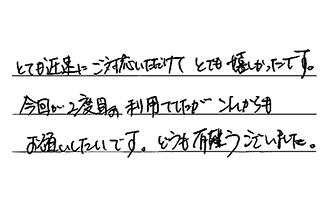 とても迅速にご対応いただけて とても嬉しかったです。
今回が2度目の利用でしたが これからも
お願いしたいです。どうも有難うございました。